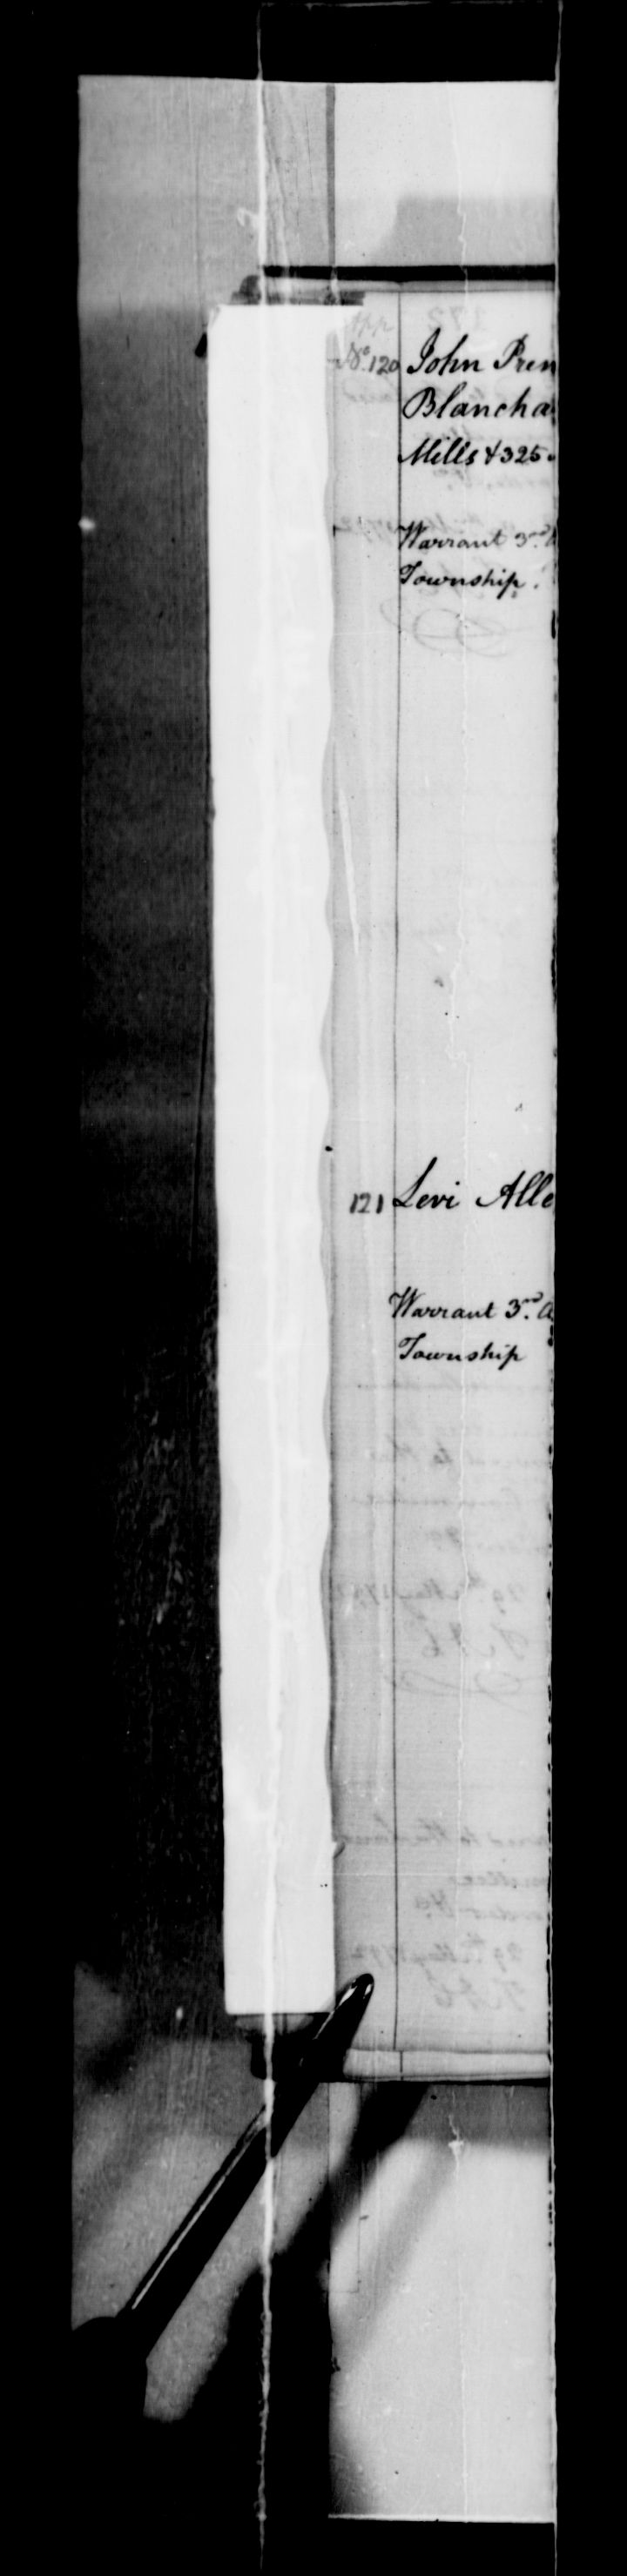 App
No. 120 John Pren
Blancha
Mills & 325
Warrant 3rd A
Township.
121 Levi Alle
Warrant 3rd A
Township